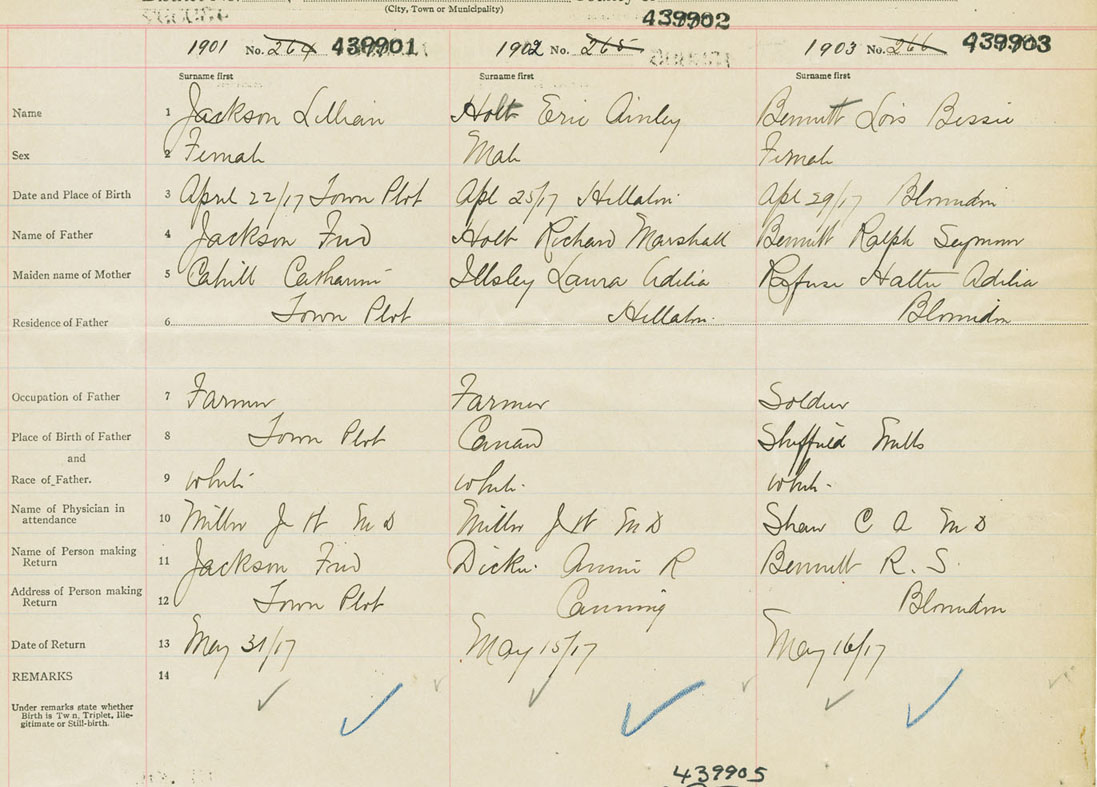 (City, Town or Municipality)
439902
1901 No. 264 439901 1902 No. 265 1903 No. 266 439903
Surname first Surname first Surname first
Name 1 Jackson Lillian Holt Eric Ainley Bennett Lois Bessie
Sex 2 Female Male Female
Date and Place of Birth 3 April 22/17 Town Plot Apl 25/17 Hillaton Apl 29/17 Blomidon
Name of Father 4 Jackson Fred Holt Richard Marshall Bennett Ralph Seymour
Maiden name of Mother 5 Cahill Catharine Illsley Laura Adilia Refuse Hattie Adilia
Residence of Father 6 Town Plot Hillaton Blomidon
Occupation of Father 7 Farmer Farmer Soldier
Place of Birth of Father 8 Town Plot Canard Sheffield Mills
and
Race of Father. 9 White White White
Name of Physician in
attendance 10 Miller J H M D Miller J H M D Shaw C A M D
Name of Person making
Return 11 Jackson Fred Dickie Annie R Bennett R. S.
Address of Person making
Return 12 Town Plot Canning Blomidon
Date of Return 13 May 31/17 May 15/17 May 16/17
REMARKS 14
Under remarks state whether
Birth is Tw n, Triplet, Ille-
gitimate or Still-birth.
439905